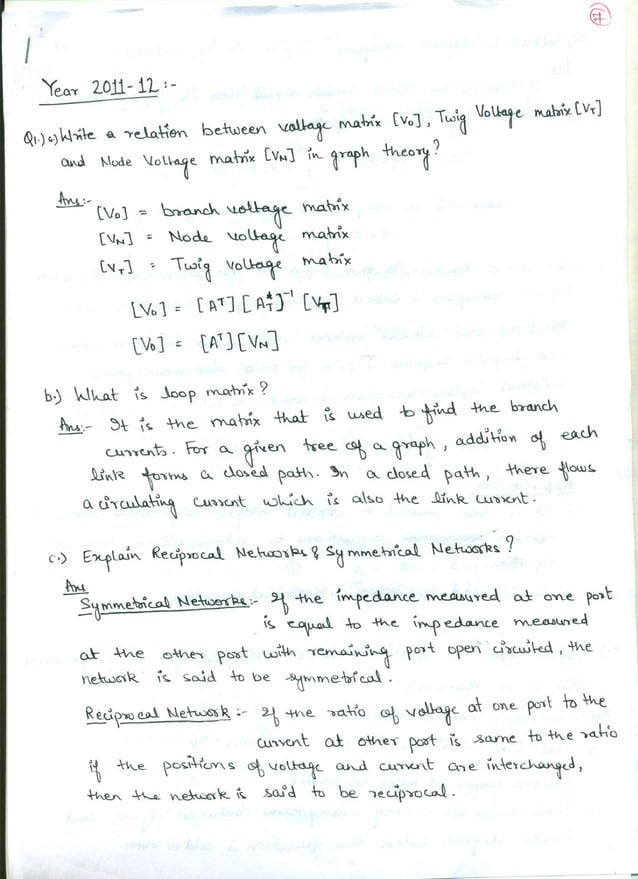 57
1
Year 2011-12 :-
Q1.) a) Write a relation between voltage matrix [Vo], Twig Voltage matrix [VT]
and Node Voltage matrix [VN] in graph theory?
Ans:-
[Vo] = branch voltage matrix
[VN] = Node voltage matrix
[VT] = Twig voltage matrix
[Vo] = [Aᵀ][Aᵀ_T]⁻¹ [VT]
[Vo] = [Aᵀ][VN]
b.) What is loop matrix?
Ans:- It is the matrix that is used to find the branch
currents. For a given tree of a graph, addition of each
link forms a closed path. In a closed path, there flows
a circulating current which is also the link current.
c.) Explain Reciprocal Networks & Symmetrical Networks?
Ans
Symmetrical Networks:- If the impedance measured at one port
is equal to the impedance measured
at the other port with remaining port open circuited, the
network is said to be symmetrical.
Reciprocal Network:- If the ratio of voltage at one port to the
current at other port is same to the ratio
if the positions of voltage and current are interchanged,
then the network is said to be reciprocal.